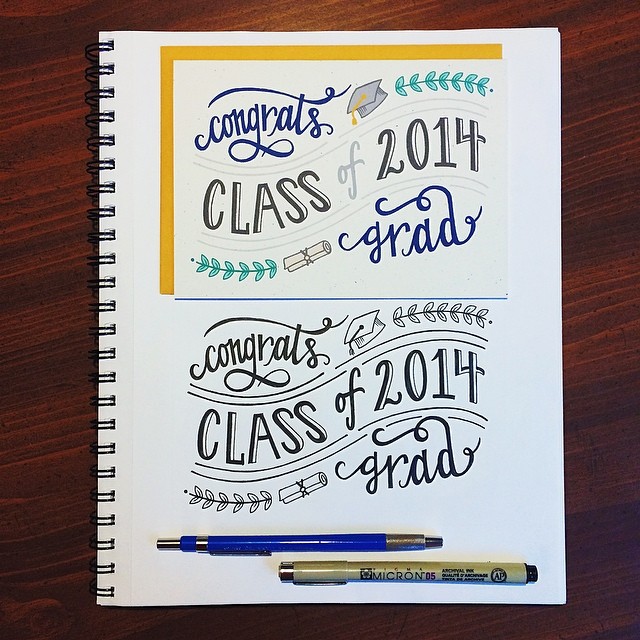 congrats
CLASS of 2014
grad
congrats
CLASS of 2014
grad
SIGMA
MICRON 05
ARCHIVAL INK
QUALITÉ D'ARCHIVAGE
AP